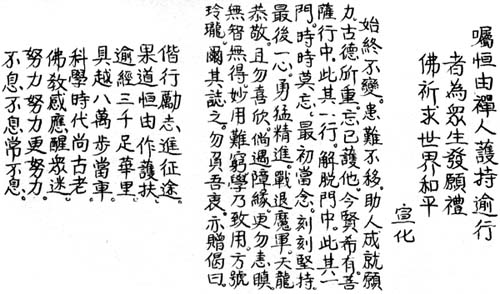 囑恒由禪人護持逾行
者為眾生發願禮
佛祈求世界和平
宣化
始終不變。患難不移。助人成就願
力。古德所重。忘己護他。今賢希有。菩
薩行中。此其一行。解脫門中。此其一
門。時時莫忘。最初當念。刻刻堅持。
最後一心。勇猛精進。戰退魔軍。天龍
恭敬。且勿喜欣。倘遇障緣。更勿恚瞋。
無智無得。妙用難窮。學乃致用。方號
玲瓏。爾其誌之。勿負吾衷。亦贈偈曰。
偕行勵志進征途。
果道恒由作護扶。
逾經三千足華里。
具越八萬步當車。
科學時代尚古老。
佛教感應醒眾迷。
努力努力更努力。
不息不息常不息。